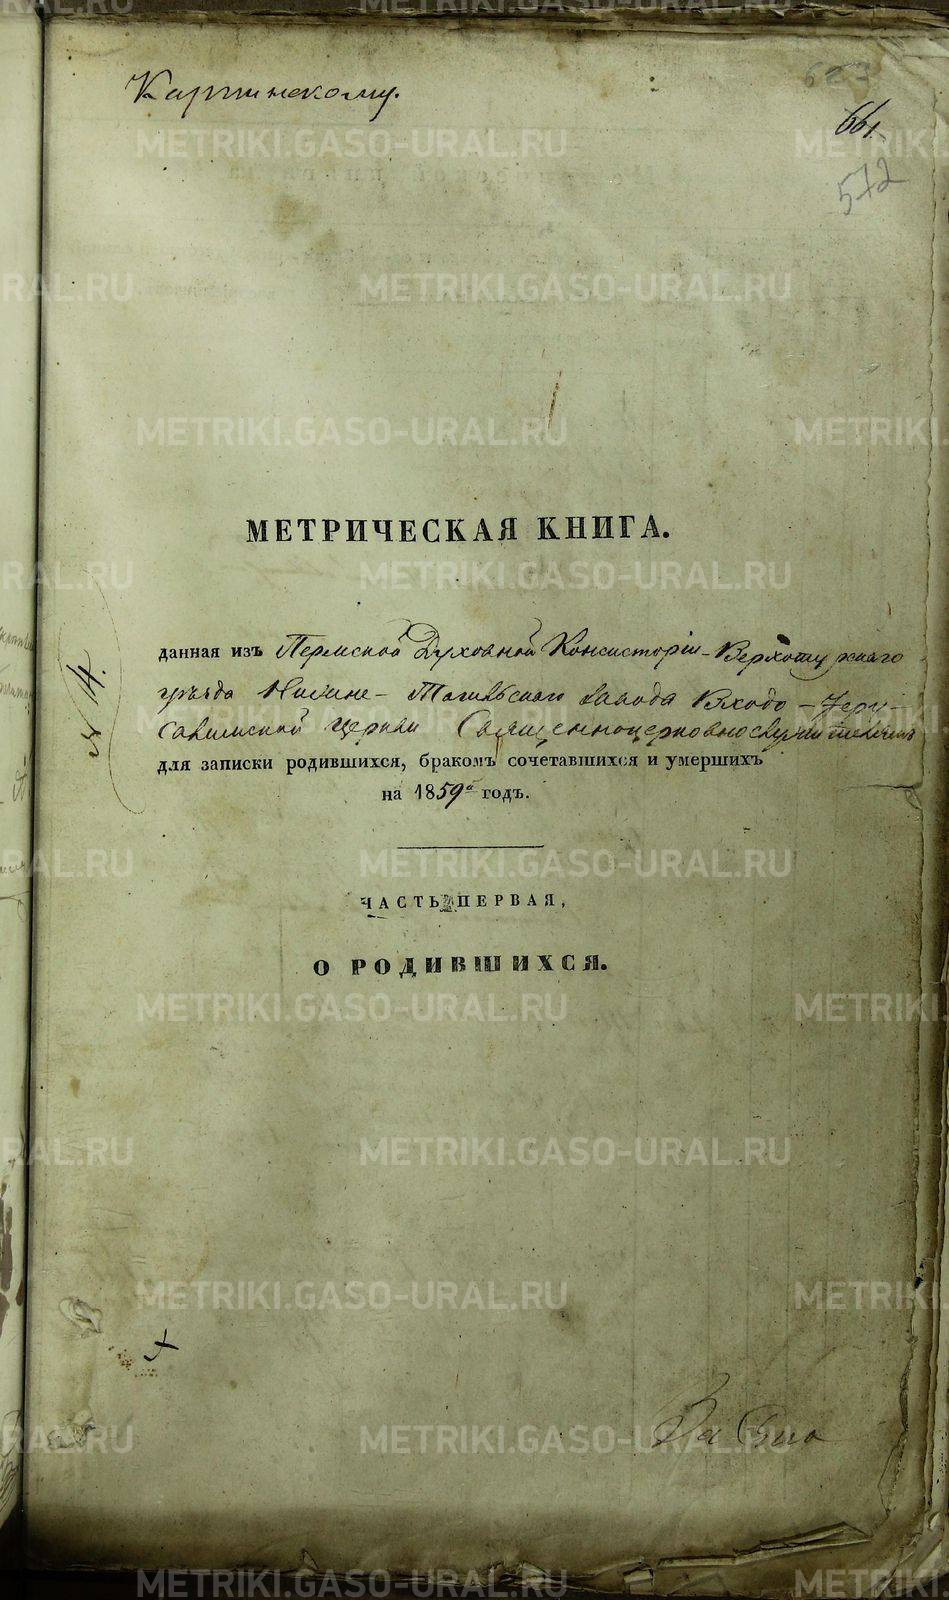 Карпинскому.
661.
572
МЕТРИЧЕСКАЯ КНИГА.
данная изъ Пермской Духовной Консисторіи Верхотурскаго
уѣзда Нижне-Тагильскаго завода Входо-Іеру-
салимской церкви Священноцерковнослужителямъ
для записки родившихся, бракомъ сочетавшихся и умершихъ
на 1859й годъ.
14.
ЧАСТЬ ПЕРВАЯ,
О РОДИВШИХСЯ.
METRIKI.GASO-URAL.RU